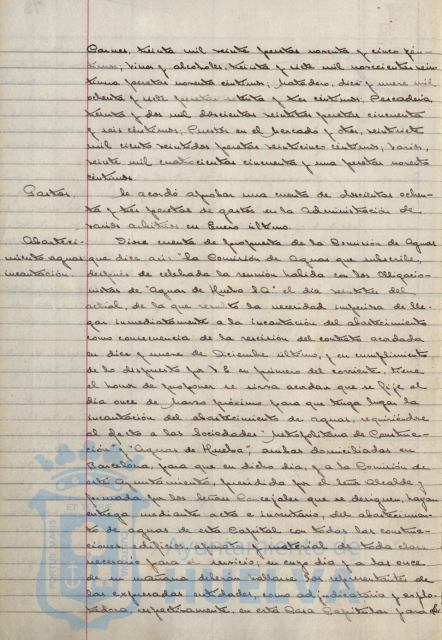 Carnes, treinta mil veinte pesetas noventa y cinco cén-
timos; vinos y alcoholes, treinta y siete mil novecientas vein
tiuna pesetas noventa céntimos; Matadero, diez y nueve mil
ochenta y siete pesetas setenta y tres céntimos, Pescadería,
treinta y dos mil doscientas veintitres pesetas cincuenta
y seis céntimos, Puestos en el mercado y otros, veintisiete
mil ciento veintidos pesetas veinticinco céntimos, varios,
veinte mil cuatrocientas cincuenta y una pesetas noventa
céntimos.
Gastos. Se acordó aprobar una cuenta de doscientas ochen-
ta y tres pesetas de gastos en la Administración de
varios arbitrios en Enero último.
Abasteci- Diose cuenta de propuesta de la Comisión de Aguas
miento aguas que dice así: "La Comisión de Aguas que suscribe,
incautación. después de celebrada la reunión habida con los Obligacio-
nistas de "Aguas de Huelva S.A." el día veintitres del
actual, de la que resultó la necesidad imperiosa de lle-
gar inmediatamente a la incautación del abastecimiento
como consecuencia de la rescisión del contrato acordada
en diez y nueve de Diciembre último, y en cumplimiento
de lo dispuesto por V.E. en primero del corriente, tiene
el honor de proponer se sirva acordar que se fije el
día once de Marzo próximo para que tenga lugar la
incautación del abastecimiento de aguas, requiriéndose
al efecto a las Sociedades "Metropolitana de Construc-
ción" y "Aguas de Huelva", ambas domiciliadas en
Barcelona, para que en dicho día, y a la Comisión de
este Ayuntamiento, presidida por el señor Alcalde y
formada por los señores Concejales que se designen, hagan
entrega mediante acta e inventario, del abastecimien-
to de aguas de esta Capital con todas las construc-
ciones, edificios, aparatos y material de toda clase
necesario para el servicio; en cuyo día y a las once
de su mañana deberán hallarse los representantes de
las expresadas entidades, como adjudicataria y explo-
tadora, respectivamente, en esta Casa Capitular y para
Ayuntamiento de